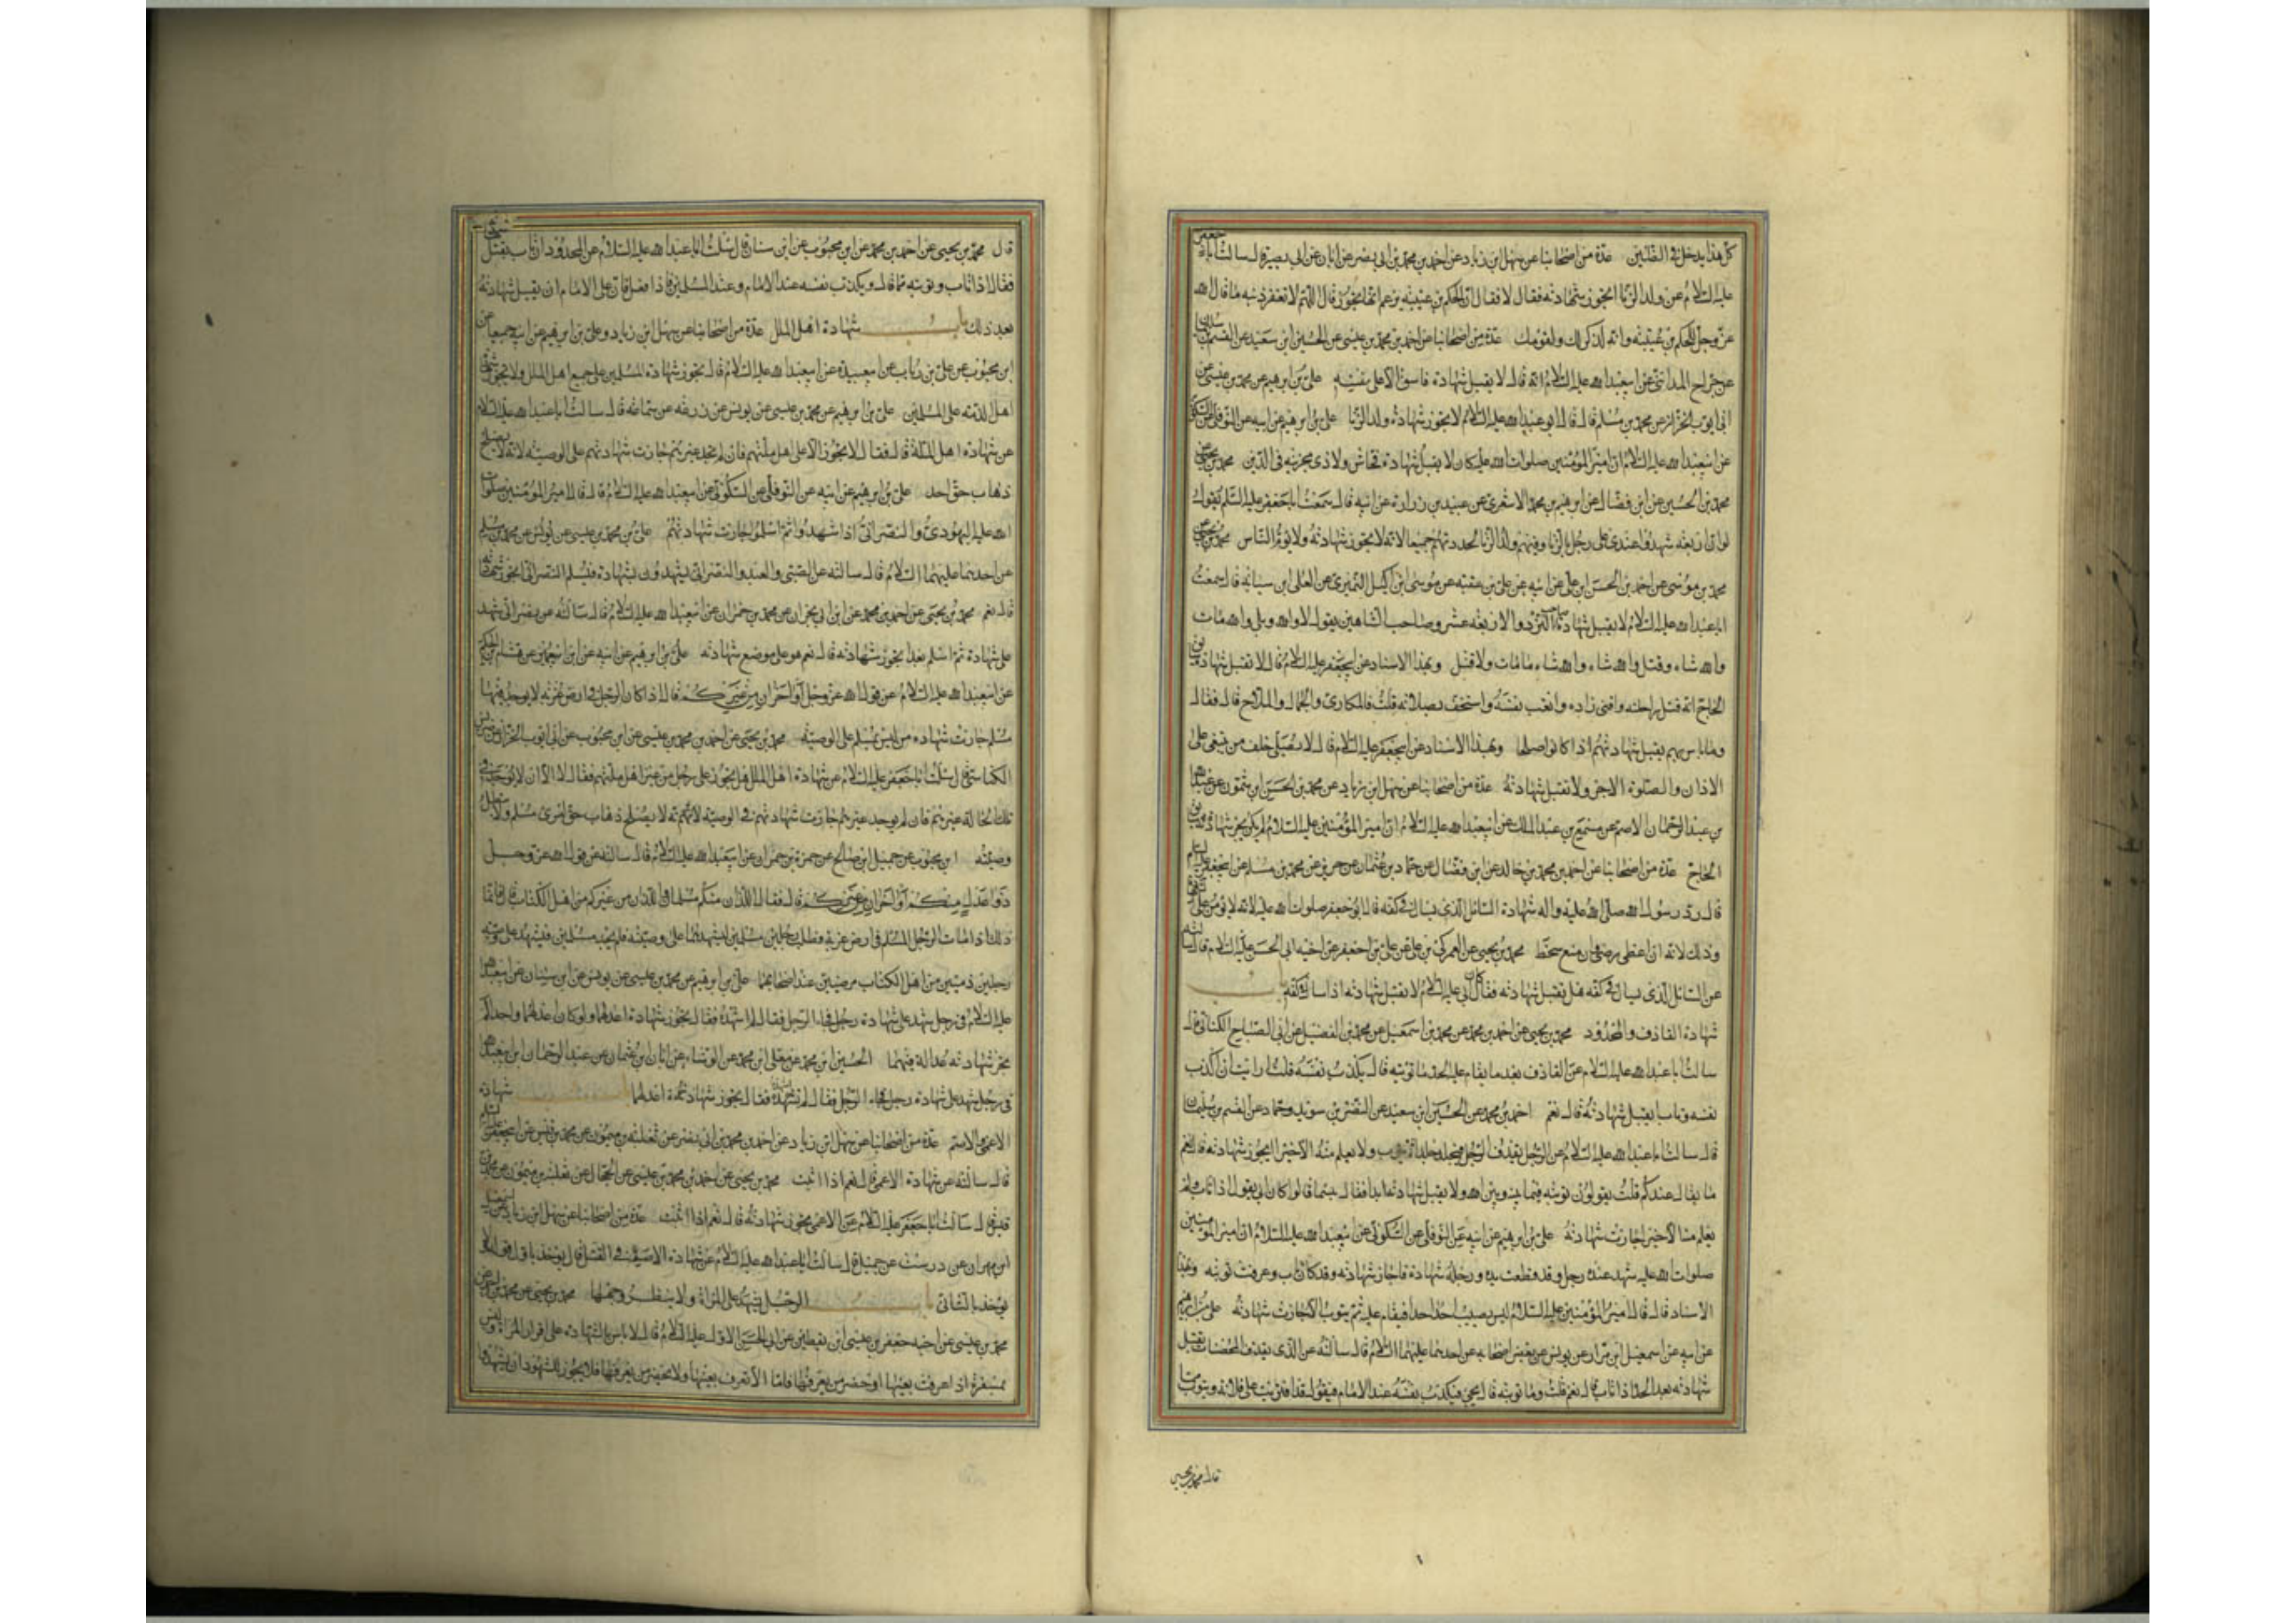 كل هذا يدخل في الظنين عدة من اصحابنا عن سهل ابن زياد عن احمد بن محمد بن ابي نصر عن ابان عن ابي بصير قال سالت ابا جعفر
عليه السلام عن ولد الزنا ايجوز شهادته فقال لا فقال ان الحكم بن عتيبه يزعم انها يجوز قال اللهم لا تغفر ذنبه ما قال الله
عز وجل للحكم بن عتيبه وانه لذكر لك ولقومك عدة من اصحابنا عن احمد بن محمد بن عيسى عن الحسين ابن سعيد عن القسم بن سليمان
عن جراح المدائني عن ابيعبد الله عليه السلام انه قال لا يقبل شهادة فاسق الا على نفسه علي بن ابرهيم عن محمد بن عيسى عن
ابي ايوب الخزاز عن محمد بن مسلم قال قال ابو عبد الله عليه السلام لا يجوز شهادة ولد الزنا علي بن ابرهيم عن ابيه عن النوفلي عن السكوني
عن ابيعبد الله عليه السلام ان امير المؤمنين صلوات الله عليه كان لا يقبل شهادة فحاش ولا ذي مخزيه في الدين محمد بن يحيى عن
محمد بن الحسين عن ابن فضال عن ابرهيم بن محمد الاشعري عن عبيد بن زرارة عن ابيه قال سمعت اباجعفر عليه السلم يقول
لو ان اربعة شهدوا عندي على رجل بالزنا وفيهم ولد الزنا لحددتهم جميعا لانه لا يجوز شهادته ولا يؤم الناس محمد بن يحيى عن
محمد بن موسى عن احمد بن الحسن ابن علي عن ابيه عن علي بن عقبه عن موسى ابن اكيل النميري عن العلى ابن سيابه قال سمعت
ابا عبد الله عليه السلام لا يقبل شهادة صاحب النرد والاربعة عشر وصاحب الشاهين يقول لا والله وبلى والله مات
والله شاه وقتل والله شاه والله شاه مامات ولا قتل وبهذا الاسناد عن ابيجعفر عليه السلام قال لا تقبل شهادة سابق
الحاج انه قتل راحلته وافنى زاده واتعب نفسه واستخف بصلاته قلت فالمكاري والجمال والملاح قال فقال
وما باس بهم يقبل شهادتهم اذا كانوا صلحا وبهذا الاسناد عن ابيجعفر عليه السلام قال لا تصلى خلف من يبغى على
الاذان والصلوة الاجر ولا تقبل شهادته عدة من اصحابنا عن سهل ابن زياد عن محمد بن الحسين ابن شمون عن عبد الله
بن عبد الرحمان الاصم عن مسمع بن عبد الملك عن ابيعبد الله عليه السلام ان امير المؤمنين عليه السلام لم يكن يجيز شهادة سابق
الحاج عدة من اصحابنا عن احمد بن محمد بن خالد عن ابن فضال عن حماد بن عثمان عن حريز عن محمد بن مسلم عن ابيجعفر عليه السلم
قال رد رسول الله صلى الله عليه واله شهادة السائل الذي يسال في كفه قال ابو جعفر صلوات الله عليه لانه لا يؤمن على الشهادة
وذلك لانه ان اعطى رضي وان منع سخط محمد بن يحيى عن العمركي بن علي عن علي بن جعفر عن اخيه ابي الحسن عليه السلام قال سالته
عن السائل الذي يسال في كفه هل تقبل شهادته فقال كان ابي عليه السلام لا يقبل شهادته اذا سال في كفه باب
شهادة القاذف والمحدود محمد بن يحيى عن احمد بن محمد عن محمد بن اسمعيل عن محمد بن الفضيل عن ابي الصباح الكناني قال
سالت ابا عبد الله عليه السلام عن القاذف بعد ما يقام عليه الحد ما توبته قال يكذب نفسه قلت ارايت ان اكذب
نفسه وتاب ايقبل شهادته قال نعم احمد بن محمد عن الحسين ابن سعيد عن النضر بن سويد وحماد عن القسم بن سليمان
قال سالت ابا عبد الله عليه السلام عن الرجل يقذف الرجل فيجلد حدا ثم يتوب ولا يعلم منه الا خيرا ايجوز شهادته قال نعم
ما يقال عندكم قلت يقولون توبته فيما بينه وبين الله ولا يقبل شهادته ابدا فقال بئسما قالوا كان ابي يقول اذا تاب ولم
يعلم منه الا خيرا جازت شهادته علي بن ابرهيم عن ابيه عن النوفلي عن السكوني عن ابيعبد الله عليه السلام ان امير المؤمنين
صلوات الله عليه شهد عنده رجل وقد قطعت يده ورجله شهادة فاجاز شهادته وقد كان تاب وعرفت توبته وبهذا
الاسناد قال قال امير المؤمنين عليه السلام ليس يصيب احدا حدا فيقام عليه ثم يتوب الا جازت شهادته علي بن ابرهيم
عن ابيه عن اسمعيل ابن مرار عن يونس عن بعض اصحابه عن احدهما عليهما السلام قال سالته عن الذي يقذف المحصنات يقبل
شهادته بعد الحد اذا تاب قال نعم قلت وما توبته قال يجئ فيكذب نفسه عند الامام فيقول قد افتريت على فلانه ويتوب مما
قال محمد بن يحيى
قال محمد بن يحيى عن احمد بن محمد عن ابن محبوب عن ابن سنان قال سئلت ابا عبد الله عليه السلام عن المحدود ان تاب يقبل شهادته
فقال اذا تاب وتوبته مما قال ويكذب نفسه عند الامام وعند المسلمين فاذا فعل فان على الامام ان يقبل شهادته
بعد ذلك باب شهادة اهل الملل عدة من اصحابنا عن سهل ابن زياد وعلي بن ابرهيم عن ابيه جميعا عن
ابن محبوب عن علي بن رئاب عن ابيعبيدة عن ابيعبد الله عليه السلام قال تجوز شهادة المسلمين على جميع اهل الملل ولا يجوز شهادة
اهل الذمه على المسلمين علي بن ابرهيم عن محمد بن عيسى عن يونس عن زرعه عن سماعه قال سالت ابا عبد الله عليه السلام
عن شهادة اهل الملة قال فقال لا يجوز الا على اهل ملتهم فان لم تجد غيرهم جازت شهادتهم على الوصيه لانه لا يصلح
ذهاب حق احد علي بن ابرهيم عن ابيه عن النوفلي عن السكوني عن ابيعبد الله عليه السلام قال قال امير المؤمنين صلوات
الله عليه اليهودي والنصراني اذا شهدوا ثم اسلموا جازت شهادتهم علي بن محمد بن عيسى عن يونس عن محمد بن مسلم
عن احدهما عليهما السلام قال سالته عن الصبي والعبد والنصراني يشهدون بشهادة فيسلم النصراني ايجوز شهادته
قال نعم محمد بن يحيى عن احمد بن محمد عن ابن ابي نجران عن محمد بن حمران عن ابيعبد الله عليه السلام قال سالته عن نصراني شهد
على شهادة ثم اسلم بعد ايجوز شهادته قال نعم هو على موضع شهادته علي بن ابرهيم عن ابيه عن ابن ابيعمير عن هشام بن الحكم
عن ابيعبد الله عليه السلام عن قول الله عز وجل أو آخران من غيركم قال اذا كان الرجل في ارض غربة لا يوجد فيها
مسلم جازت شهادة من ليس بمسلم على الوصيه محمد بن يحيى عن احمد بن محمد بن عيسى عن ابن محبوب عن ابي ايوب الخزاز عن ضريس
الكناسي قال سئلت ابا جعفر عليه السلام عن شهادة اهل الملل هل يجوز على رجل من غير اهل ملتهم فقال لا الا ان لا يوجد في
تلك الحالة غيرهم فان لم يوجد غيرهم جازت شهادتهم في الوصيه لانه لا يصلح ذهاب حق امرئ مسلم ولا يبطل
وصيته ابن محبوب عن جميل ابن صالح عن حمزة بن حمران عن ابيعبد الله عليه السلام قال سالته عن قول الله عز وجل
ذوا عدل منكم أو آخران من غيركم قال فقال اللذان منكم مسلمان واللذان من غيركم من اهل الكتاب قال فانما
ذلك اذا مات الرجل المسلم في ارض غربة وطلب رجلين مسلمين ليشهدهما على وصيته فلم يجد مسلمين فيشهد على وصيته
رجلين ذميين من اهل الكتاب مرضيين عند اصحابهما علي بن ابرهيم عن محمد بن عيسى عن يونس عن ابن سنان عن ابيعبد الله
عليه السلام في رجل شهد على شهادة رجل فجاء الرجل فقال لم اشهده فقال يجوز شهادة اعدلهما ولو كان عدلهما واحدا لم
يجز شهادته عدالة فيهما الحسين ابن محمد عن معلى ابن محمد عن الوشاء عن ابان بن عثمان عن عبد الرحمان ابن ابيعبد الله
في رجل شهد على شهادة رجل فجاء الرجل فقال لم اشهده فقال يجوز شهادة اعدلهما باب شهادة
الاعمى والاصم عدة من اصحابنا عن سهل ابن زياد عن احمد بن محمد بن ابي نصر عن ثعلبه بن ميمون عن محمد بن قيس عن ابيجعفر عليه السلم
قال سالته عن شهادة الاعمى قال نعم اذا اثبت محمد بن يحيى عن احمد بن محمد بن عيسى عن الحجال عن ثعلبه بن ميمون عن محمد بن
قيس قال سالت ابا جعفر عليه السلام عن الاعمى يجوز شهادته قال نعم اذا اثبت عدة من اصحابنا عن سهل ابن زياد عن اسمعيل
ابن مهران عن درست عن جميل قال سالت ابا عبد الله عليه السلام عن شهادة الاصم في القتل قال يؤخذ باول قوله ولا
يؤخذ بالثاني باب الرجل يشهد على المراة ولا ينظر وجهها محمد بن يحيى عن احمد بن
محمد بن عيسى عن اخيه جعفر بن عيسى ابن يقطين عن ابي الحسن الاول عليه السلام قال لا باس بالشهادة على اقرار المراة وليس
بمسفرة اذا عرفت بعينها او حضر من يعرفها فاما الا تعرف بعينها ولا يحضر من يعرفها فلا يجوز للشهود ان يشهدوا